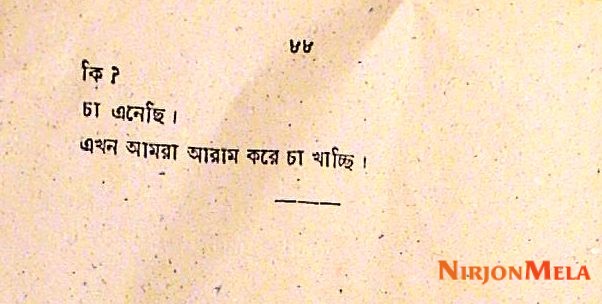 ৮৮
কি ?
চা এনেছি ।
এখন আমরা আরাম করে চা খাচ্ছি ।
NIRJONMELA